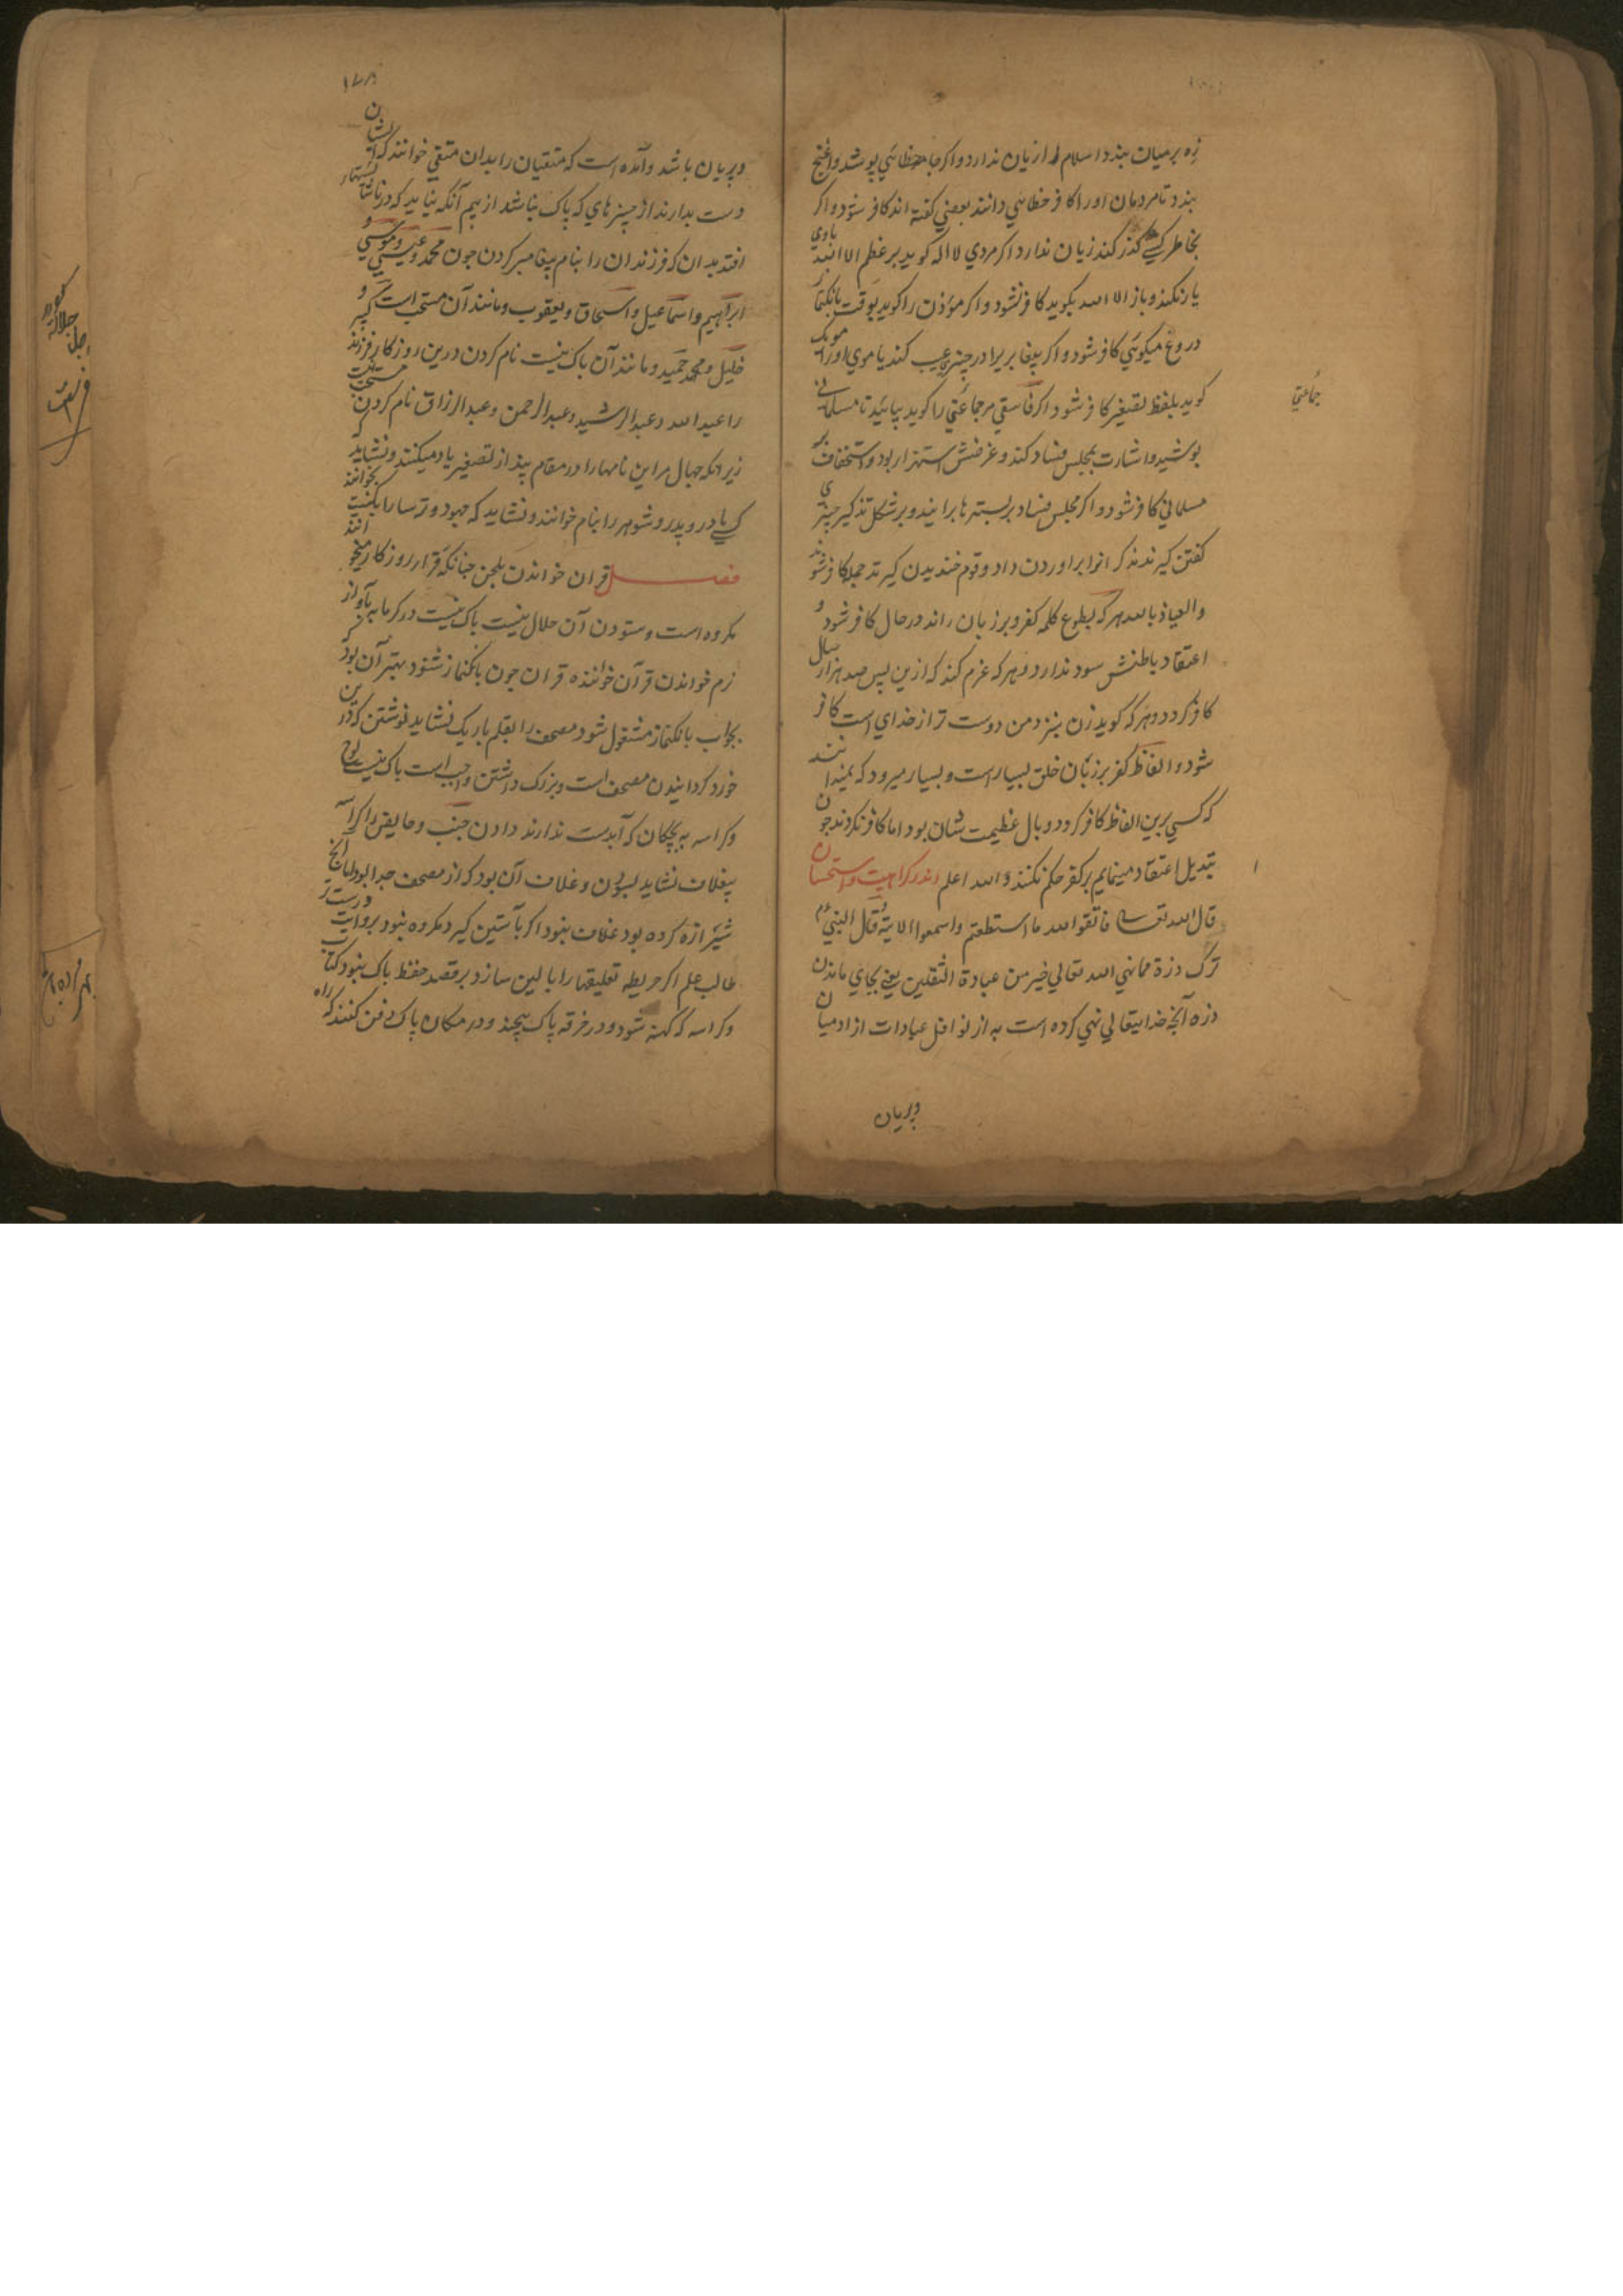 زه بر میان بندد اسلام را زیان ندارد و اکر جامه خطایی پوشد و
بندد تا مردمان او را کافر خطایی دانند بعضی کفته اند کافر شود و اکر
بخاطر کسی کذر کند زیان ندارد اکر مردی لا اله کوید بر عظم الا الله
یار نکند و باز الا الله بکوید کافر نشود و اکر موذن را کوید بوقت بانکنماز
دروغ میکویی کافر شود و اکر پیغامبریرا در چیزی عیب کند یا موی او را مویک
کوید بلفظ تصغیر کافر شود و اکر فاسقی مر جماعتی را کوید بیایید تا مسلمانی
بوشید و اشارت بمجلس فساد کند و غرضش استهزا بود و استخفاف بر
مسلمانی کافر شود و اکر مجلس فساد بر بسترها برانید و بر شکل تذکیر چیزی
کفتن کیرند ذکر انوا براوردن داد و قوم خندیدن کیرند جمله کافر شوند
والعیاذ بالله هر که بطوع کلمه کفر بر زبان راند در حال کافر شود و
اعتقاد باطنش سود ندارد و هر که عزم کند که ازین پس صد هزار سال
کافر کردد و هر که کوید زن بنزد من دوست تر از خدای است کافر
شود و الفاظ کفر بر زبان خلق بسیار است و بسیار میرود که نمیدانند
که کسی برین الفاظ کافر کردد و بال عظیمت شان بود اما کافر نکردند چون
تبدیل اعتقاد مینمایم بر کفر حکم نکنند و الله اعلم اندر کراهیت و استحسان
قال الله تعالی فاتقوا الله ما استطعتم واسمعوا الایة و قال النبی عم
ترک ذرة مما نهی الله تعالی خیر من عبادة الثقلین یعنی بجای ماندن
ذره آنچه خدایتعالی نهی کرده است به از نوافل عبادات از ادمیان
وپریان
جماعتی
۱۷۸
وپریان باشد و آمده است که متقیان را بدان متقی خوانند که ایشان
دست بدارند از چیزهای که پاک نباشد از بیم آنکه نباید که در ناشایستها
افتد بدان که فرزندان را بنام پیغامبر کردن چون محمد و عیسی و موسی و
ابراهیم و اسماعیل و اسحاق و یعقوب و مانند آن مستحب است و
خلیل و محمد حمید و مانند آن باک نیست نام کردن درین روزکار فرزند
را عبد الله و عبد الرشید و عبد الرحمن و عبد الرزاق نام کردن مستحب نیست
زیرانکه جهال مر این نامها را در مقام پند از تصغیر یاد میکنند و نشاید که
کسی مادر و پدر و شوهر را بنام خوانند و نشاید که جهود و ترسا را بکنیت بخوانند
فصل قران خواندن بلحن چنانکه قرار روزکار میخوانند
مکروه است و ستودن آن حلال نیست باک نیست در کرمابه بآواز
نرم خواندن قرآن خواننده قران چون بانکنماز شنود بهتر آن بود که
بجواب بانکنماز مشغول شود مصحف را بقلم باریک نشاید نوشتن که درین
خورد کردانیدن مصحف است و بزرک داشتن واجب است باک نیست لوح
و کراسه به بچکان که آبدست ندارند دادن جنب و حایض را کراسه
بیغلاف نشاید بسودن و غلاف آن بود که از مصحف جدا بود اما آنچ
شیرازه کرده بود غلاف نبود اکر بآستین کیرد مکروه نبود بروایت درست تر
طالب علم اکر خریطه تعلیقها را بالین سازد بر قصد حفظ باک نبود کتاب
و کراسه که کهنه شود و در خرقه پاک پیچند و در مکان پاک دفن کنند که راه